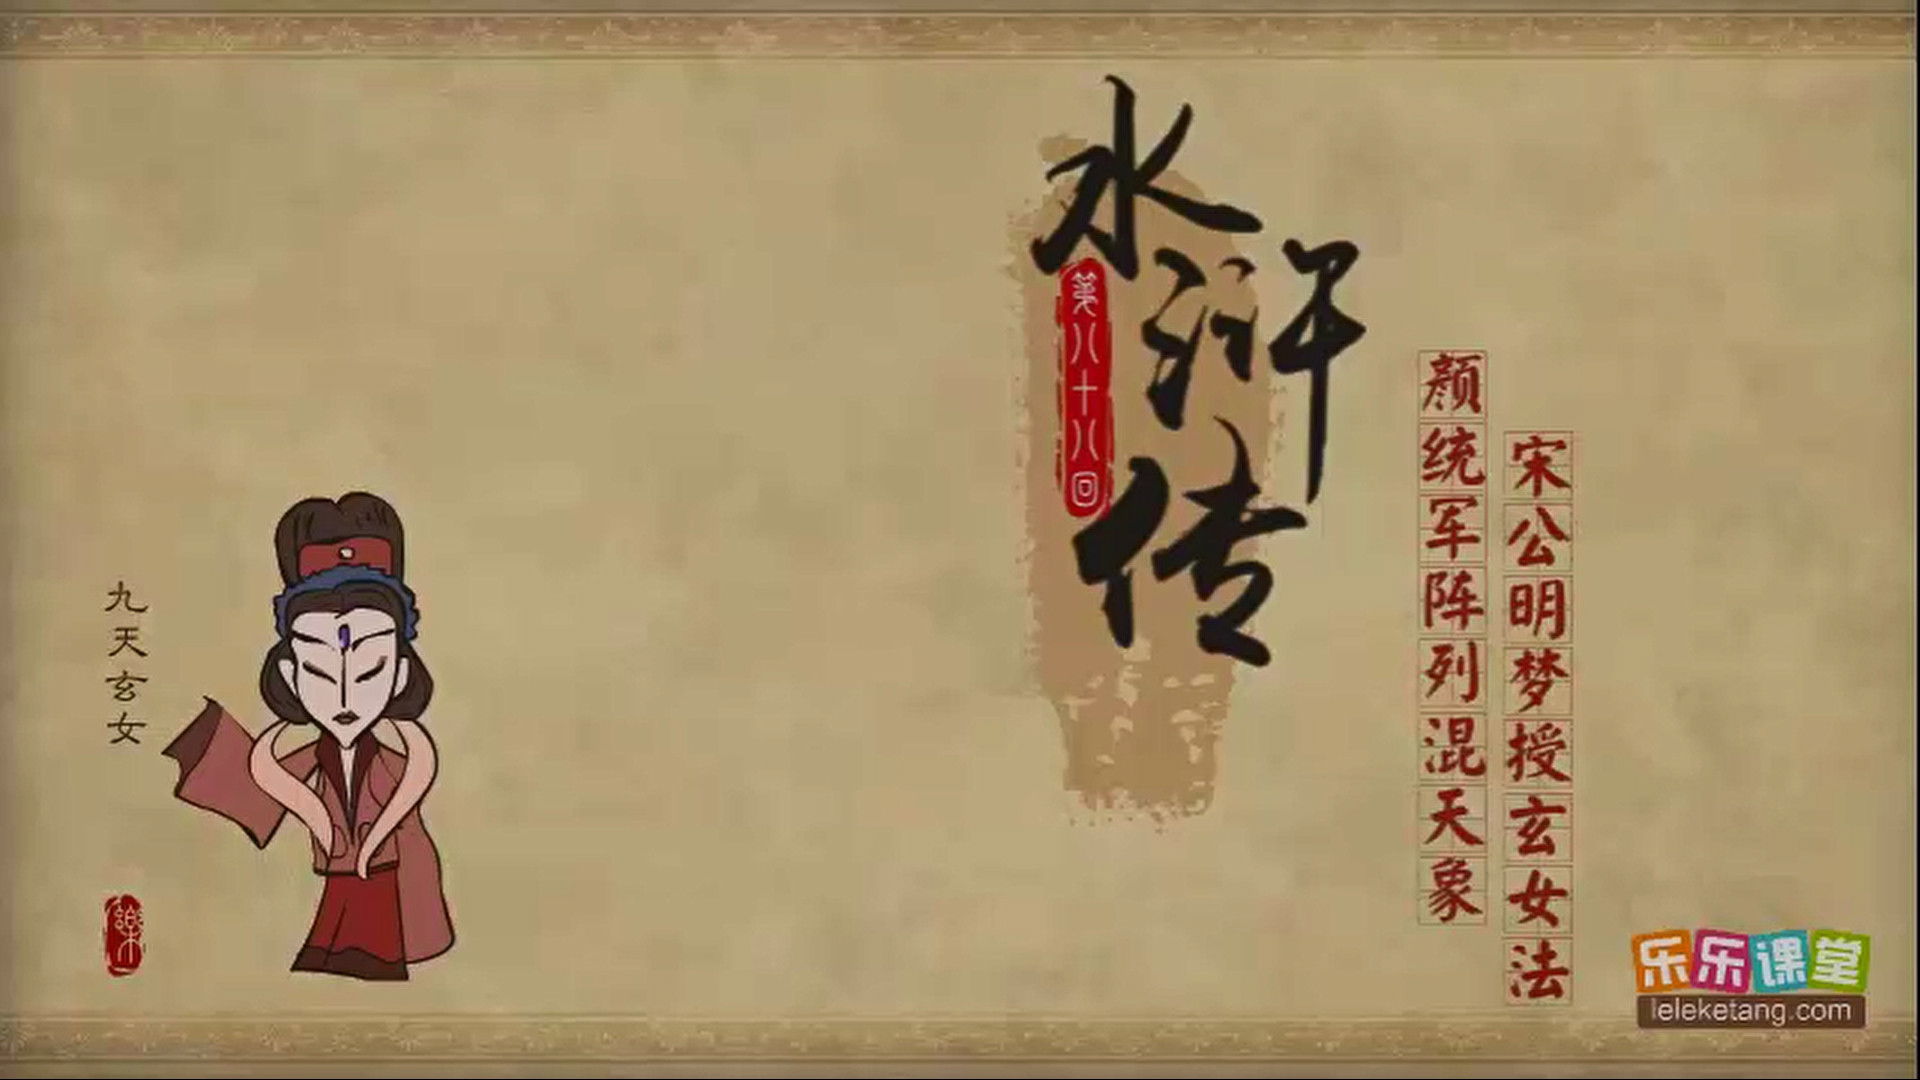 水浒传
第八十八回
颜统军阵列混天象
宋公明梦授玄女法
九天玄女
樂
乐乐课堂
leleketang.com